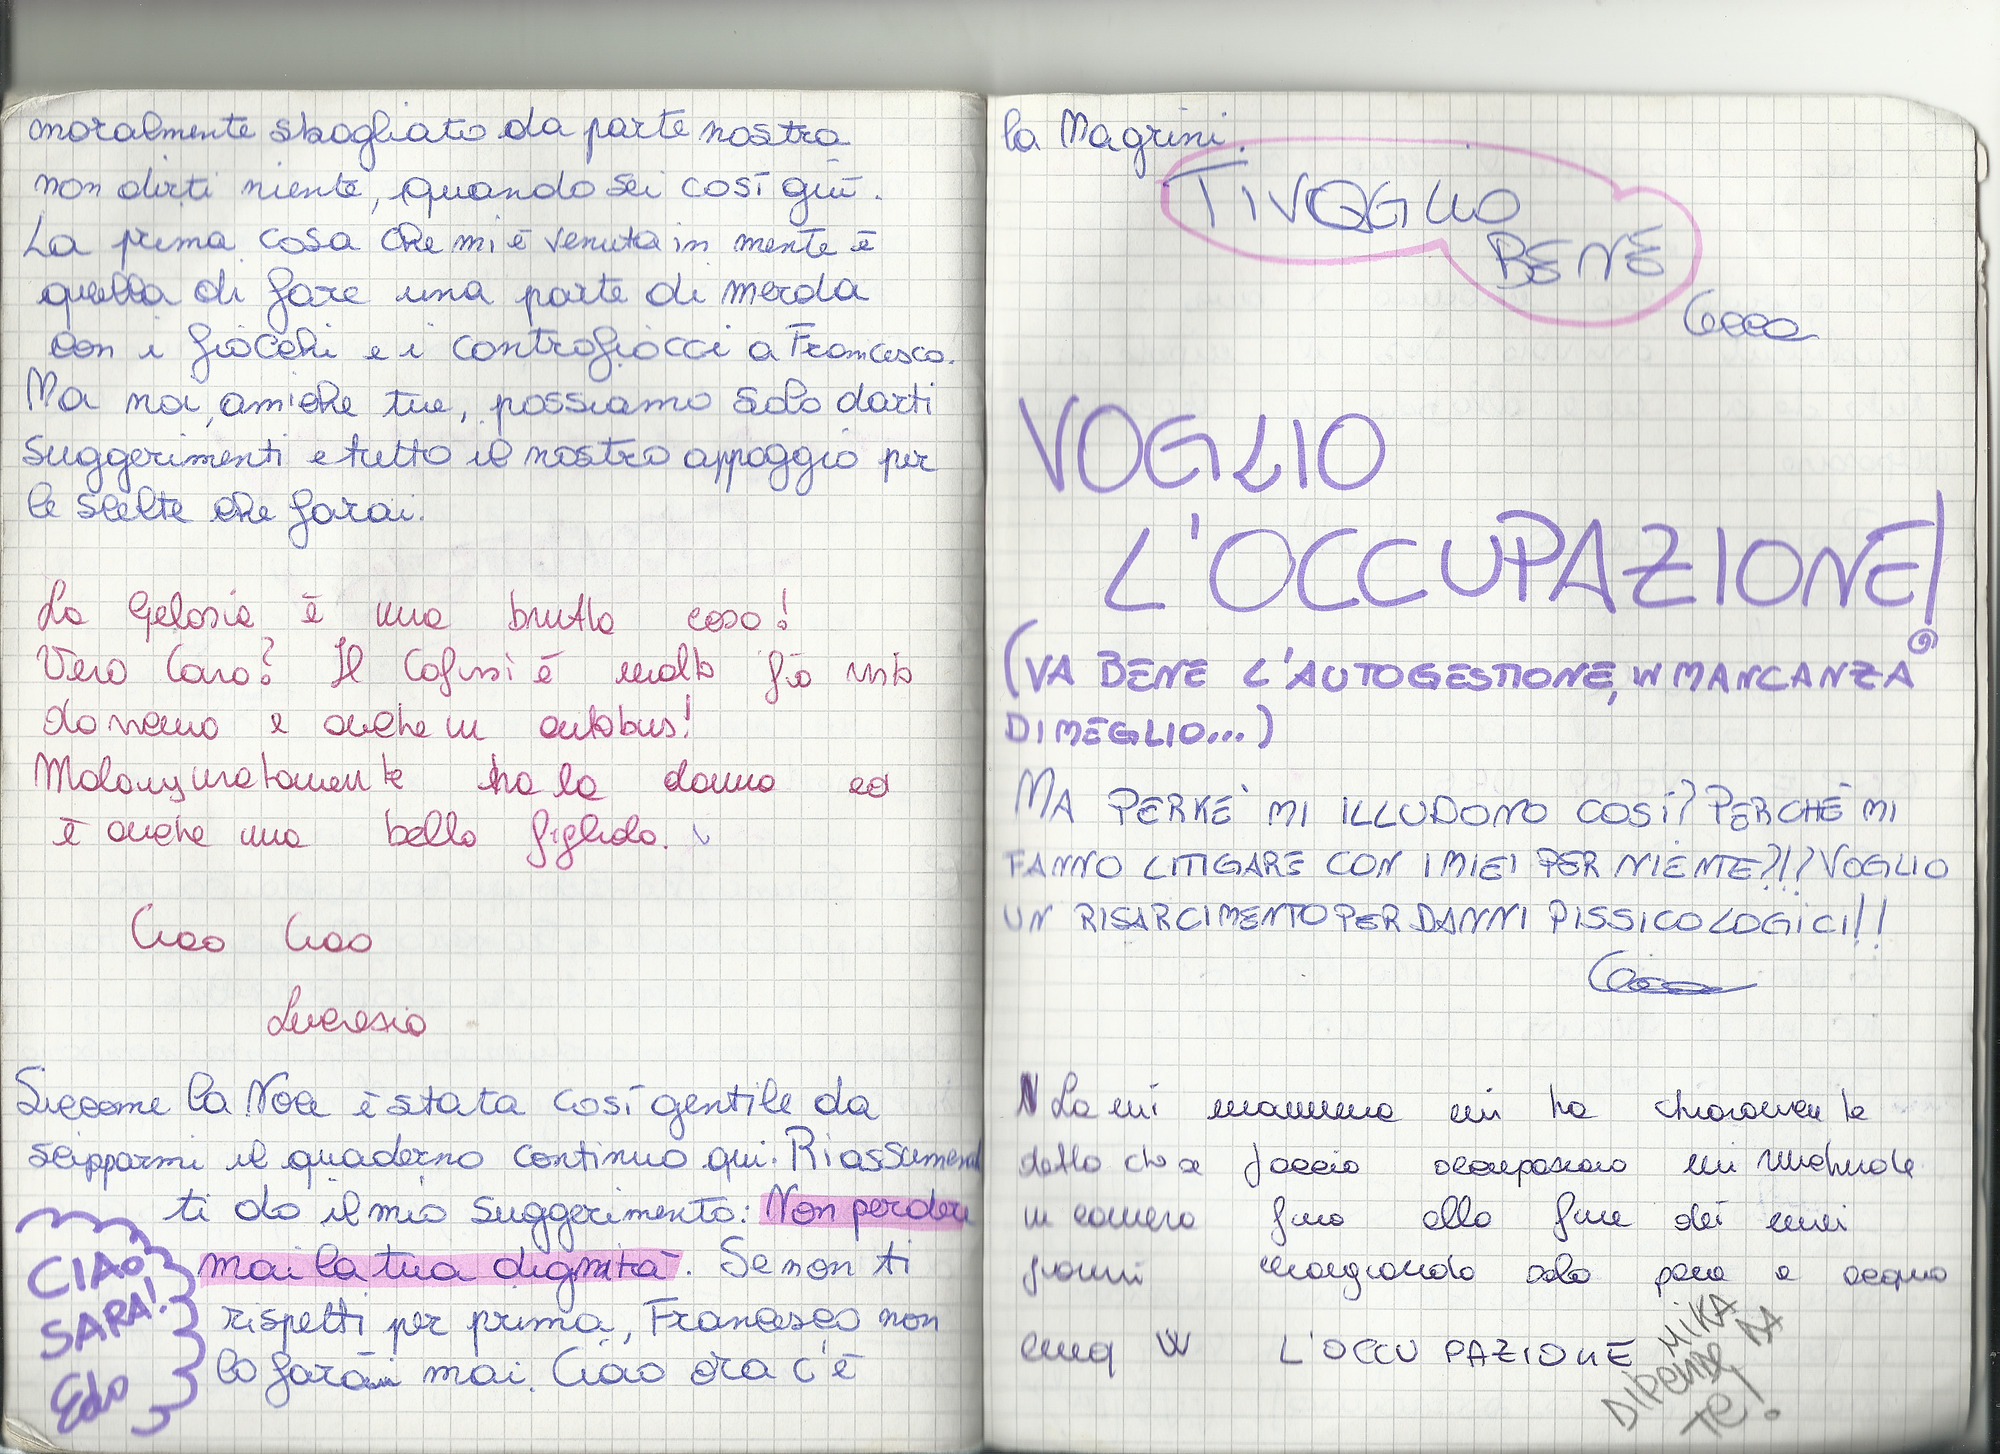 moralmente sbagliato da parte nostra
non dirti niente, quando sei così giù.
La prima cosa che mi è venuta in mente è
quella di fare una parte di merda
con i fiocchi e i controfiocci a Francesco.
Ma noi, amiche tue, possiamo solo darti
suggerimenti e tutto il nostro appoggio per
le scelte che farai.
La Gelosia è una brutta cosa!
Vero Caro? Il è molto fio visto
da nemo e anche in autobus!
ha la donna ed
è anche una bella figliola.
Ciao Ciao
Lucresia
Siccome la Noe è stata così gentile da
scipparmi il quaderno continuo qui. Riassumend
ti do il mio suggerimento: Non perdere
mai la tua dignità. Se non ti
rispetti per prima, Francesco non
lo farai mai. Ciao ora c'è
CIAO
SARA!
Edo
la Magrini.
TI VOGLIO
BENE
Cecca
VOGLIO
L'OCCUPAZIONE!
(VA BENE L'AUTOGESTIONE, IN MANCANZA
DI MEGLIO...)
MA PERKE' MI ILLUDONO COSÌ? PERCHÈ MI
FANNO LITIGARE CON I MIEI PER NIENTE?!? VOGLIO
UN RISARCIMENTO PER DANNI PISSICOLOGICI!!
La mi mamma mi ha chiaramente
detto che se faccio occupazione mi rinchiude
in camera fino alla fine dei miei
giorni mangiando solo pane e acqua
cmq W L'OCCUPAZIONE
MIKA DA
DIPENDE
TE!